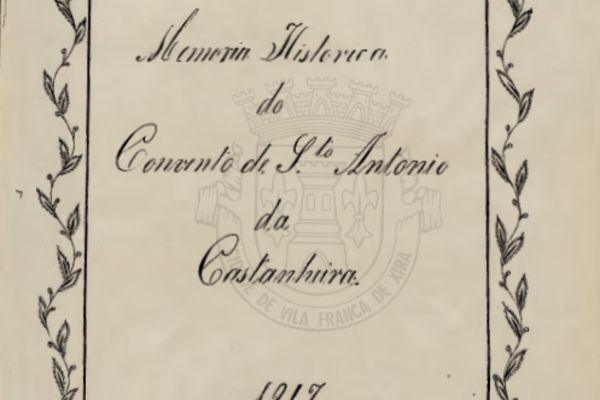 Memoria Historica
do
Convento de S.to Antonio
da
Castanheira.
DE VILA FRANCA DE XIRA